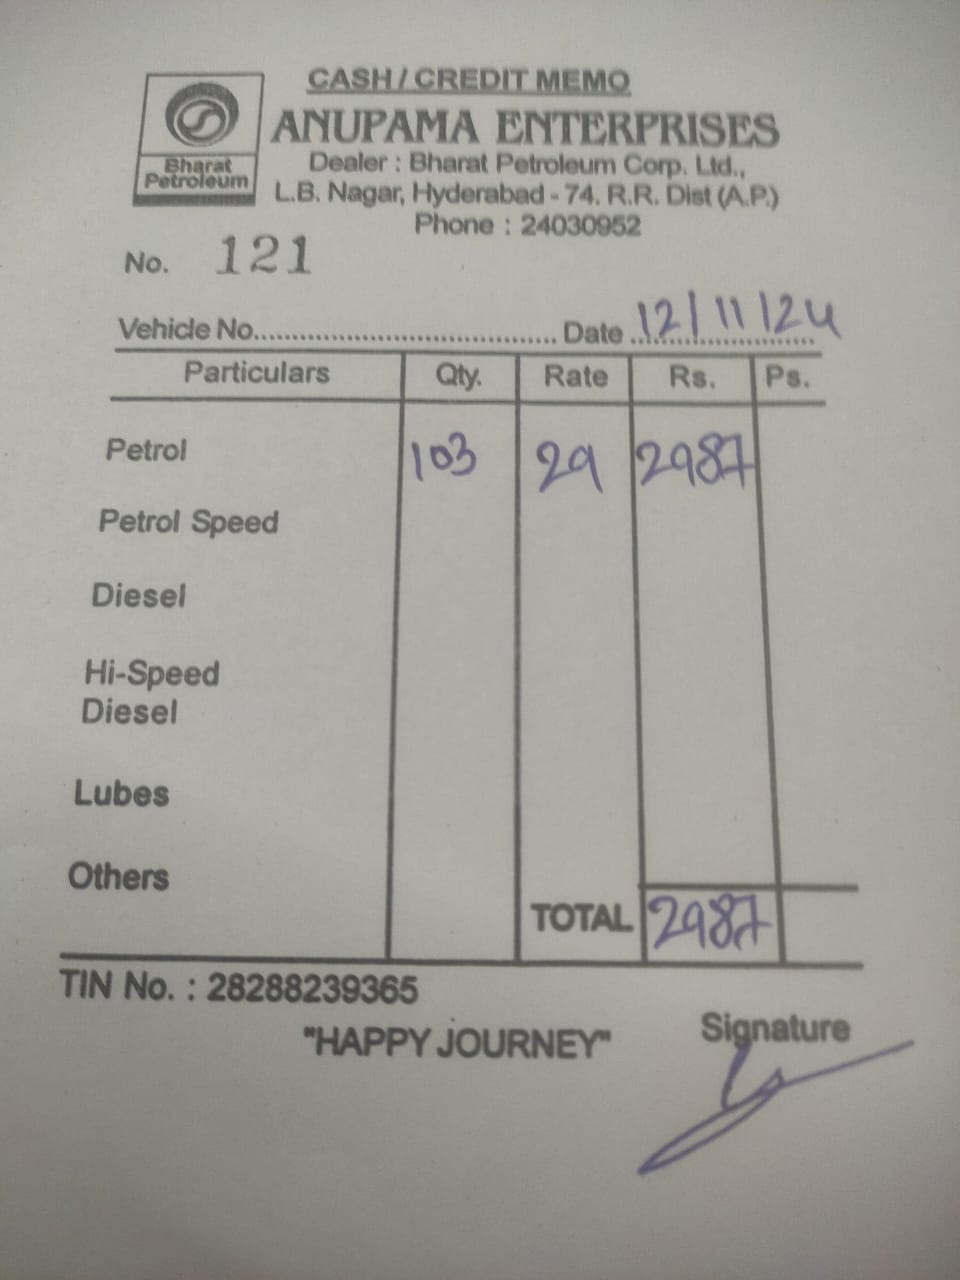 CASH / CREDIT MEMO
ANUPAMA ENTERPRISES
Bharat Petroleum
Dealer : Bharat Petroleum Corp. Ltd.,
L.B. Nagar, Hyderabad - 74. R.R. Dist (A.P.)
Phone : 24030952
No. 121
Vehicle No.................................... Date 12/11/24
Particulars Qty. Rate Rs. Ps.
Petrol 103 29 2987
Petrol Speed
Diesel
Hi-Speed
Diesel
Lubes
Others
TOTAL 2987
TIN No. : 28288239365
"HAPPY JOURNEY"
Signature